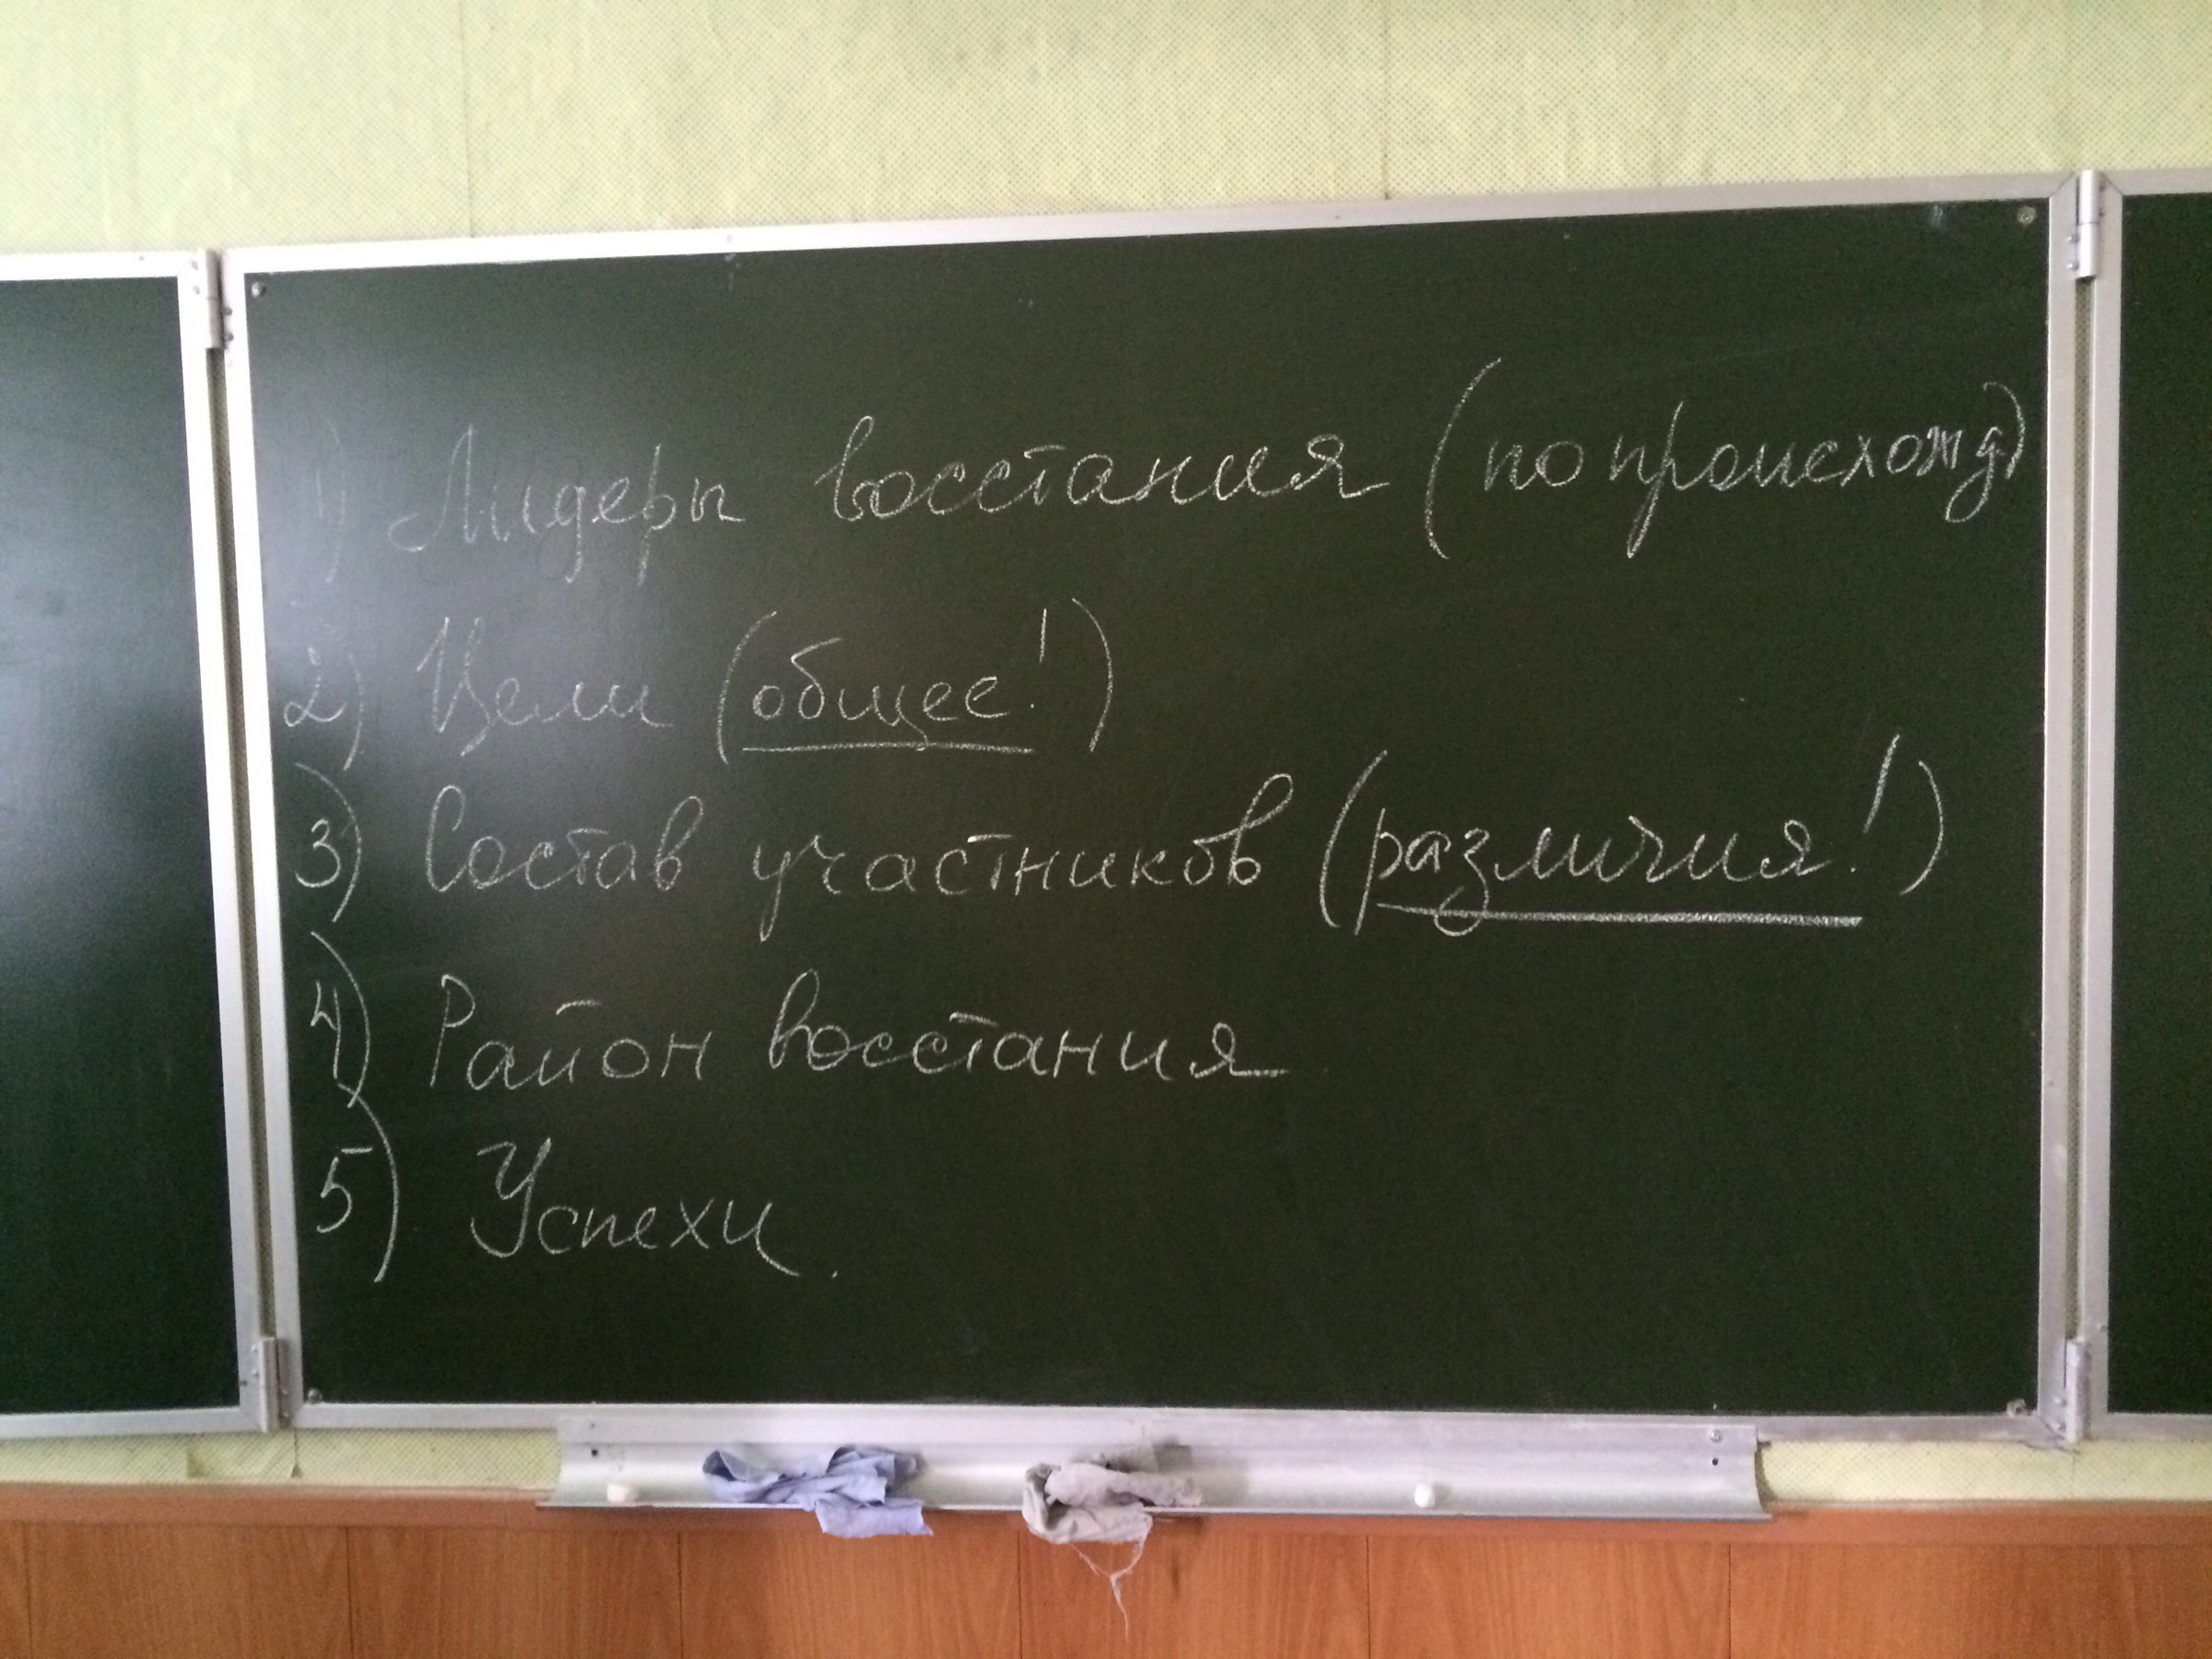 1) Лидеры восстания (по происхожд)
2) Цели (общее!)
3) Состав участников (различия!)
4) Район восстания
5) Успехи.